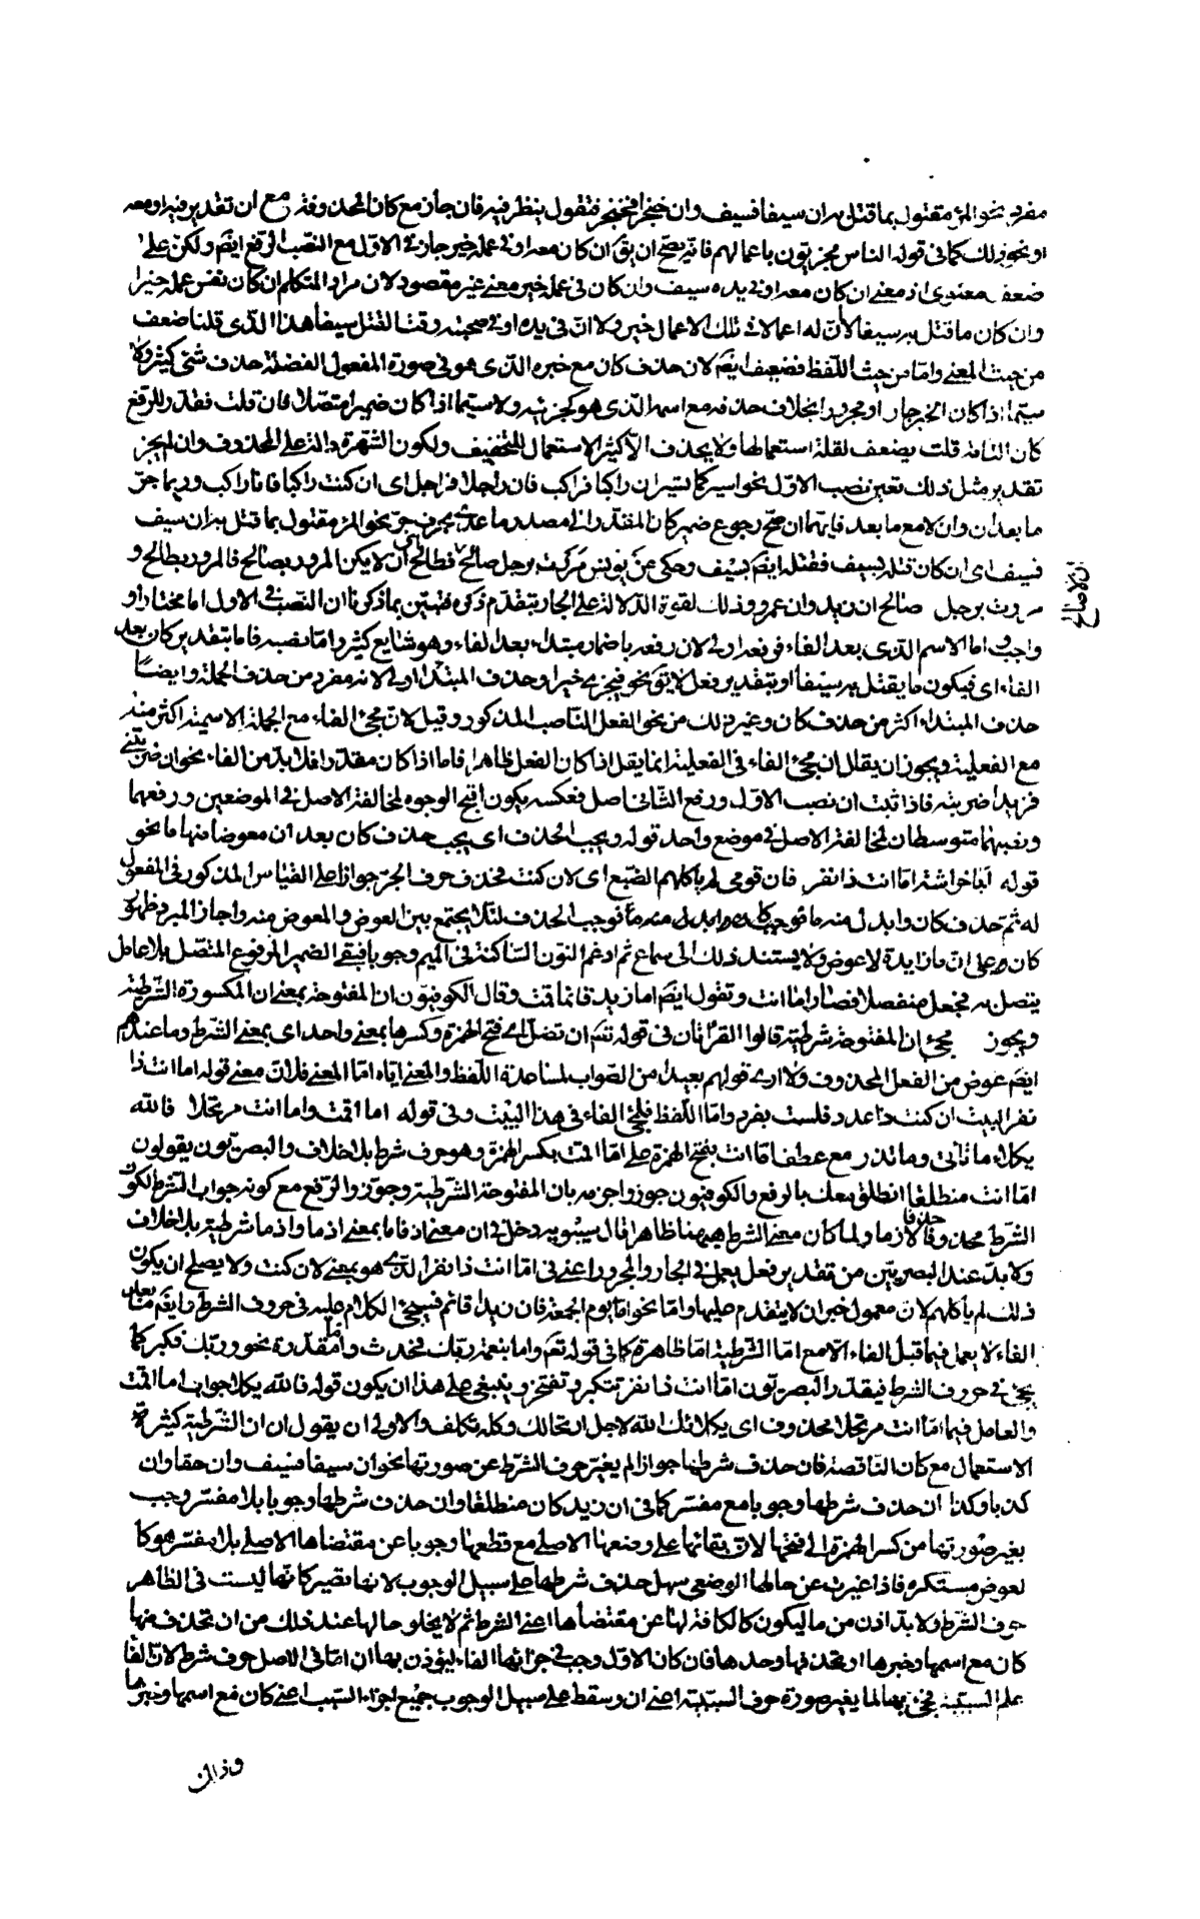 مفرد نحو المرء مقتول بما قتل به ان سيفا فسيف وان خنجرا فخنجر فنقول ينظر فيه فان جاز مع كان المحذوفة مع ان تقدير فيه او معه
او نحو ذلك كما فى قوله الناس مجزيون باعمالهم فانه يصح ان يق ان كان معه او فى عمله خير جاز فى الاول مع النصب الرفع ايضم ولكن على
ضعف معنوى اذ معنى ان كان معه او فى يده سيف وان كان فى عمله خير معنى غير مقصود لان مراد المتكلم ان كان نفس عمله خيرا
وان كان ما قتل به سيفا لا ان له اعمالا فى تلك الاعمال خير ولا ان فى يده او فى صحبته وقت القتل سيفا هذا الذى قلنا ضعف
من حيث المعنى واما من حيث اللفظ فضعيف ايضم لان حذف كان مع خبره الذى هو فى صورة المفعول الفضلة حذف شئ كثير ولا
سيما اذا كان الخبر جار او مجرور بخلاف حذفه مع اسمه الذى هو كجزئه ولا سيما اذا كان ضميرا متصلا فان قلت فقدر للرفع
كان التامة قلت يضعف لقلة استعمالها ولا يحذف الا كثير الاستعمال للتخفيف ولكون الشهرة دالة على المحذوف وان لم يجز
تقدير مثل ذلك تعين نصب الاول نحو اسير كما تسير ان راكبا فراكب فان راجلا فراجل اى ان كنت راكبا فانا راكب وربما جر
ما بعد ان وان لا مع ما بعد فائهما ان صح رجوع ضمير كان المقدر الى مصدر ما عدى بحرف جر نحو المرء مقتول بما قتل به ان سيف
فسيف اى ان كان قتله بسيف فقتله ايضم بسيف وحكى عن يونس مررت برجل صالح فطالح اى ان لا يكن المرور بصالح فالمرور بطالح و
مررت برجل صالح ان زيد وان عمرو وذلك لقوة الدلالة على الجار بتقدم ذكره فتبين بما ذكرنا ان النصب فى الاول اما مختار او
ان لا صالح
واجب اما الاسم الذى بعد الفاء فرفعه اولى لان رفعه باضمار مبتداء بعد الفاء وهو شايع كثير واما نصبه فاما بتقدير كان بعد
الفاء اى فيكون ما يقتل به سيفا او بتقدير فعل لايق نحو فيجزى خيرا وحذف المبتدا اولى لانه مفرد من حذف الجملة وايضا
حذف المبتداء اكثر من حذف كان وغير ذلك من نحو الفعل الناصب المذكور وقيل لان مجئ الفاء مع الجملة الاسمية اكثر منه
مع الفعلية ويجوز ان يقال ان مجئ الفاء فى الفعلية انما يقل اذا كان الفعل ظاهرا فاما اذا كان مقدرا فلا بد من الفاء نحو ان ضربتنى
فزيدا ضربته فاذا ثبت ان نصب الاول ورفع الثانى اصل فعكسه يكون اقبح الوجوه لمخالفة الاصل فى الموضعين ورفعهما
ونصبهما متوسطان لمخالفة الاصل فى موضع واحد قوله ويجب الحذف اى يجب حذف كان بعد ان معوضا منها ما نحو
قوله ابا خراشة اما انت ذا نفر فان قومى لم يأكلهم الضبع اى لان كنت فحذف حرف الجر جوازا على القياس المذكور فى المفعول
له ثم حذف كان وابدل منه ما فوجب الحذف لئلا يجتمع بين العوض والمعوض منه واجاز المبرد ظهور
كان على ان ما زايدة لا عوض ولا يستند ذلك الى سماع ثم ادغم النون الساكنة فى الميم وجوبا فبقى الضمير المرفوع المتصل بلا عامل
يتصل به فجعل منفصلا فصار اما انت وتقول ايضم اما زيد قائما قمت وقال الكوفيون ان المفتوحة بمعنى ان المكسورة الشرطية
ويجوز مجئ ان المفتوحة شرطية قالوا القرأتان فى قوله تعم ان تضل اى فتح الهمزة وكسرها بمعنى واحد اى بمعنى الشرط وما عندهم
ايضم عوض من الفعل المحذوف ولا ارى قولهم بعيدا من الصواب لمساعدة اللفظ والمعنى اياه اما المعنى فلان معنى قوله اما انت ذا
نفر البيت ان كنت ذا عدد فلست بفرد واما اللفظ فلمجئ الفاء فى هذا البيت وفى قوله اما اقمت واما انت مرتحلا فالله
يكلأ ما تأتى وما تذر مع عطف اما انت بفتح الهمزة على اما اقمت بكسر الهمزة وهو حرف شرط بلا خلاف والبصريون يقولون
اما انت منطلقا انطلق معك بالرفع والكوفيون جوزوا جزمه بان المفتوحة الشرطية وجوزوا الرفع مع كونه جواب الشرط لكون
الشرط محذوفا حذفا لازما ولما كان معنى الشرط هيهنا ظاهرا قال سيبويه دخل فى ان معنى اذ فاما بمعنى اذ ما واذ ما شرطية بلا خلاف
ولا بد عند البصريين من تقدير فعل يعمل فى الجار والمجرور اعنى فى اما انت ذا نفر الذى هو بمعنى لان كنت ولا يصلح ان يكون
ذلك لم يأكلهم لان معمول خبر ان لا يتقدم عليها واما نحو اما يوم الجمعة فان زيدا قائم فسيجئ الكلام عليه فى حروف الشرط وايضم ما بعد
الفاء لا يعمل فيما قبل الفاء الا مع اما الشرطية اما ظاهرة كما فى قوله تعم واما بنعمة ربك فحدث واما مقدرة نحو وربك فكبر كما
يجئ فى حروف الشرط فيقدر البصريون اما انت ذا نفر تتكبر وتفتخر وينبغى على هذا ان يكون قوله فالله يكلأ جواب اما اقمت
والعامل فيما اما انت مرتحلا محذوف اى يكلائك الله لاجل ارتحالك وكله تكلف والاولى ان يقول ان ان الشرطية كثيرة
الاستعمال مع كان الناقصة فان حذف شرطها جوازا لم يغير حرف الشرط عن صورتها نحو ان سيفا فسيف وان حقا وان
كذبا وكذا ان حذف شرطها وجوبا مع مفسر كما فى ان زيد كان منطلقا وان حذف شرطها وجوبا بلا مفسر وجب
بغير صورتها من كسر الهمزة الى فتحها لان بقائها على وضعها الاصلى مع قطعها وجوبا عن مقتضاها الاصلى بلا مفسر هو كا
لعوض مستكره فاذا غيرت عن حالها الوضعى سهل حذف شرطها على سبيل الوجوب لانها تصير كانها ليست فى الظاهر
حرف الشرط ولا بد اذن من ما ليكون كالكافة لها عن مقتضاها اعنى الشرط ثم لا يخلو حالها عند ذلك من ان تحذف منها
كان مع اسمها وخبرها او تحذفها وحدها فان كان الاول وجب فى جزائها الفاء ليؤذن بها ان اما فى الاصل حرف شرط لان الفا
علم السببية فجئ بها لما يغير صورة حرف السببية اعنى ان وسقط على سبيل الوجوب جميع اجزاء السبب اعنى كان مع اسمها وخبرها
وذا لن